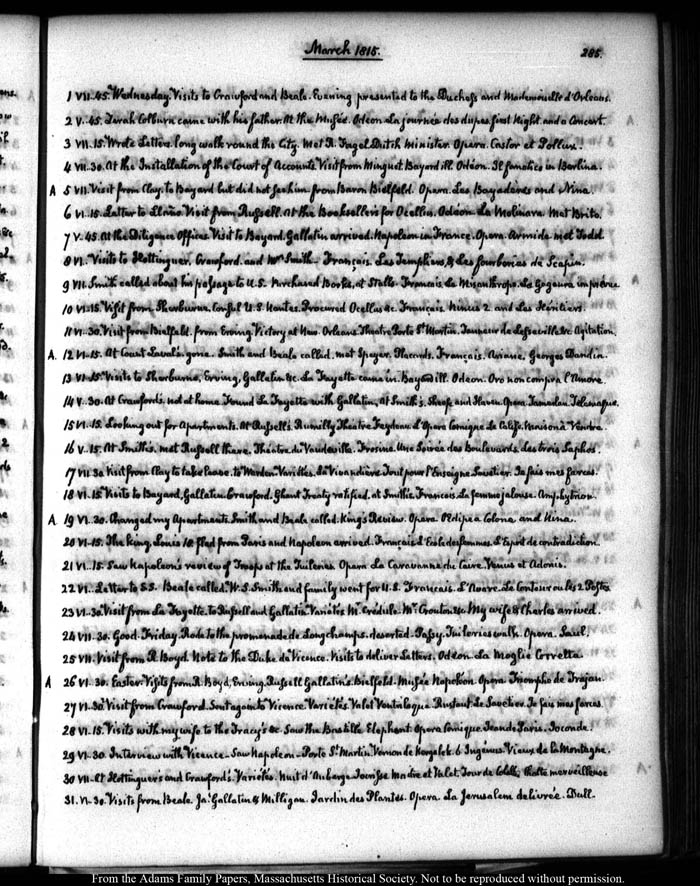 March 1815.
285.
1 VII.45. Wednesday. Visits to Crawford and Beale. Evening presented to the Duchess and Mademoiselle d'Orleans.
2 V.45. Sarah Colburn came with his father. At the Musée. Odeon La journée des dupes first Night. and a Concert.
3 VII.15. Wrote Letters. long walk round the City. Met R. Fagel Dutch Minister. Opera. Castor et Pollux.
4 VII.30. At the Installation of the Court of Accounts. Visit from Minguet. Bayard ill. Odéon. Il fanatico in Berlina.
A 5 VII. Visit from Clay, to Bayard but did not see him. from Baron Bielfeld. Opera. Les Bayaderes and Nina.
6 VI.15. Letter to Llaño. Visit from Russell. At the Booksellers for Ocellus. Odéon. La Molinara. Met Brito.
7 V.45. At the Diligence Offices. Visit to Bayard. Gallatin arrived. Napoleon in France. Opera. Armide. met Todd
8 VI. Visits to Hottinguer, Crawford. and Mrs Smith. Français. Les Templiers, & Les fourberies de Scapin.
9 VII. Smith called about his passage to U.S. Purchased Books, at Stalls. Francais. Le Misanthrope. La Gageure imprévue.
10 VI.15. Visit from Sherburne. Consul U.S. Nantes. Procured Ocellus &c. Français. Ninus 2 and Les Héritiers.
11 VI.30. Visit from Bielfeld. from Erving. Victory at New Orleans. Theatre Porte St. Martin. &c. Agitation.
A. 12 VI.15. At Court. Laval's gone. Smith and Beale called. met Speyer. Placards. Français. Ariane, Georges Dandin.
13 VI.15. Visits to Sherburne, Erving, Gallatin &c. La Fayette came in. Bayard ill. Odeon. Oro non compra l'Amore.
14 V.30. At Crawford's, not at home. Found La Fayette with Gallatin, at Smith's. and Opera Tamerlan. Telemaque.
15 VI.15. Looking out for Apartments. At Russell's. Rumilly Theatre Feydeau & Opera Comique. Le Calife. Maison à Vendre.
16 V.15. At Smith's. met Russell there. Théatre du Vaudeville. Frosine. Une Soirée des Boulevards. Les trois Saphos.
17 VII.30 Visit from Clay to take leave. to Warden. Variétés. La Vivandière. Tout pour l'Enseigne. Savetier. Je fais mes farces.
18 VI.15. Visits to Bayard, Gallatin. Crawford. Ghent Treaty ratified. at Smith's. Francois. La femme jalouse. Amphytrion.
A 19 VI.30. Changed my Apartments. Smith and Beale called. King's Review. Opera. Oedipe a Colone and Nina.
20 VI.15. The King, Louis 18 fled from Paris and Napoleon arrived. Français. L'Ecole des femmes. L'Esprit de contradiction.
21 VI.15. Saw Napoleon's review of Troops at the Tuileries. Opera La Caravanne du Caire. Venus et Adonis.
22 VI. Letter to S.S. Beale called. W.S. Smith and family went for U.S. Français. L'Avare. Le Conteur ou les 2 Postes
23 VI.30. Visit from La Fayette. to Russell and Gallatin. Variétés. Mr. Credule. Mr. Crouton &c. My wife & Charles arrived.
24 VII.30. Good. Friday. Rode to the promenade de Longchamps. deserted. Passy. Tuileries walk. Opera. Saul.
25 VII. Visit from R Boyd. Note to the Duke de Vicence. Visits to deliver Letters. Odeon. La Moglie Corretta.
A 26 VI.30. Easter. Visits from R. Boyd, Erving. Russell. Gallatin's. Bielfeld. Musée Napoleon. Opera. Triomphe de Trajan.
27 VI.30. Visit from Crawford. Sent again to Vicence. Varietés. Valet Ventriloque. Savetier. Je fais mes farces.
28 VI.15. Visits with my wife to the Tracy's &c. Saw the Bastille Elephant. Opera Comique. Jean de Paris. Joconde.
29 VI.30. Interview with Vicence. Saw Napoleon. Porte St. Martin. 6 Ingénus. Vieux de la Montagne.
30 VII. At Hottinguer's and Crawford's. Variétés. Nuit d'Auberge. Jocrisse Maître et Valet. halte merveilleuse
31. VI.30. Visits from Beale. Ja: Gallatin & Milligan. Jardin des Plantes. Opera. La Jerusalem delivrée. Dull.
From the Adams Family Papers, Massachusetts Historical Society. Not to be reproduced without permission.